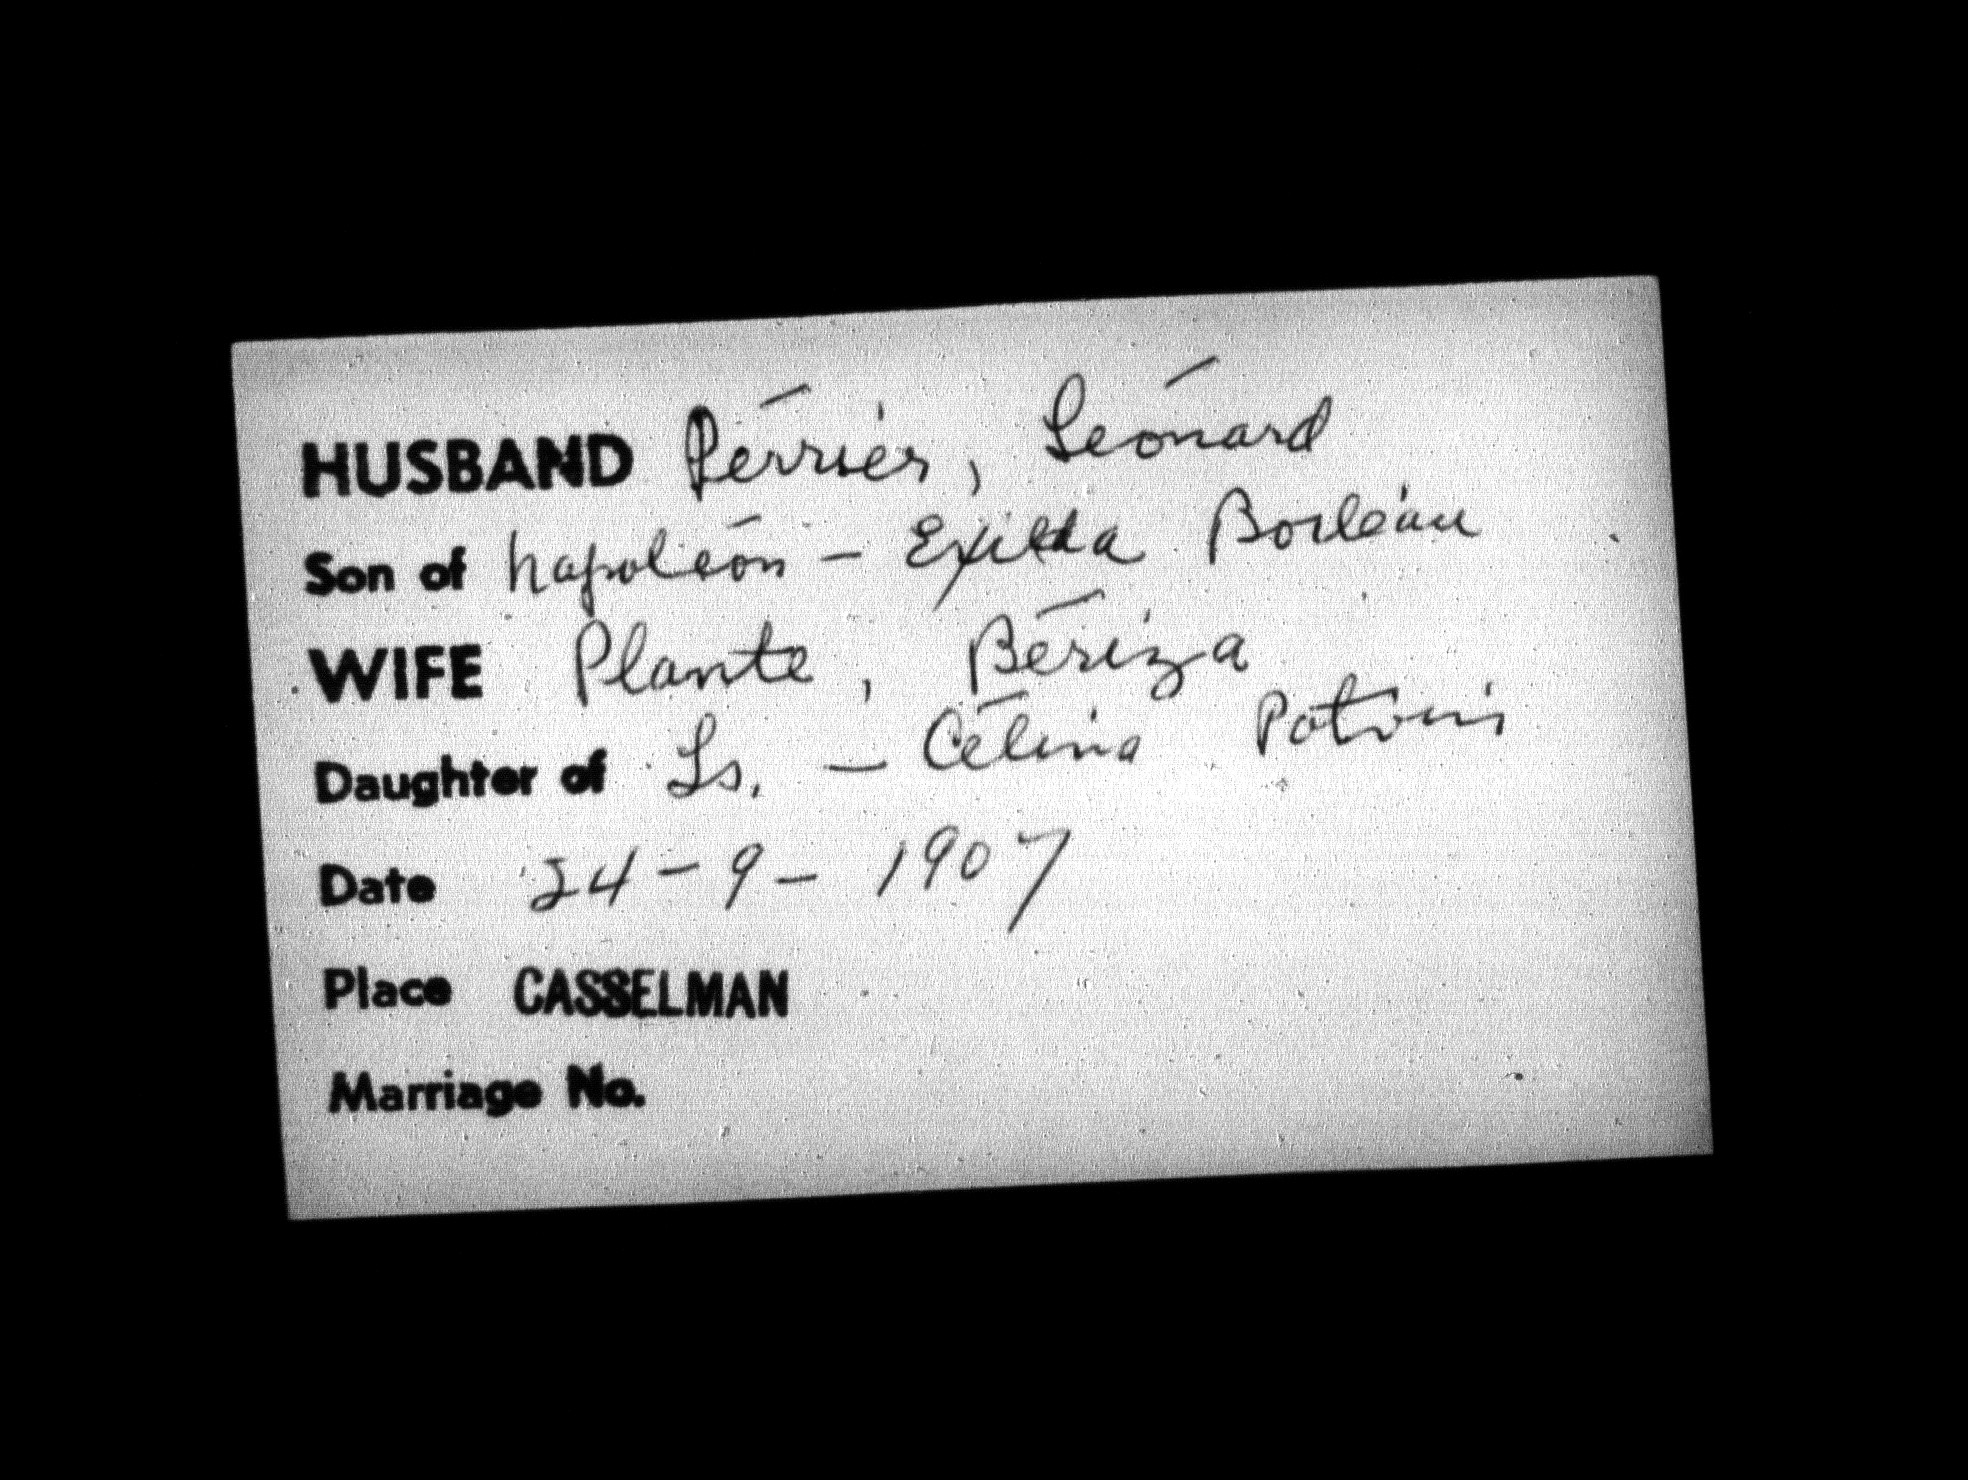 HUSBAND Périer, Léonard
Son of Napoléon - Exilda Boileau
WIFE Plante, Bériza
Daughter of Ls. - Célina Potvin
Date 24-9-1907
Place CASSELMAN
Marriage No.